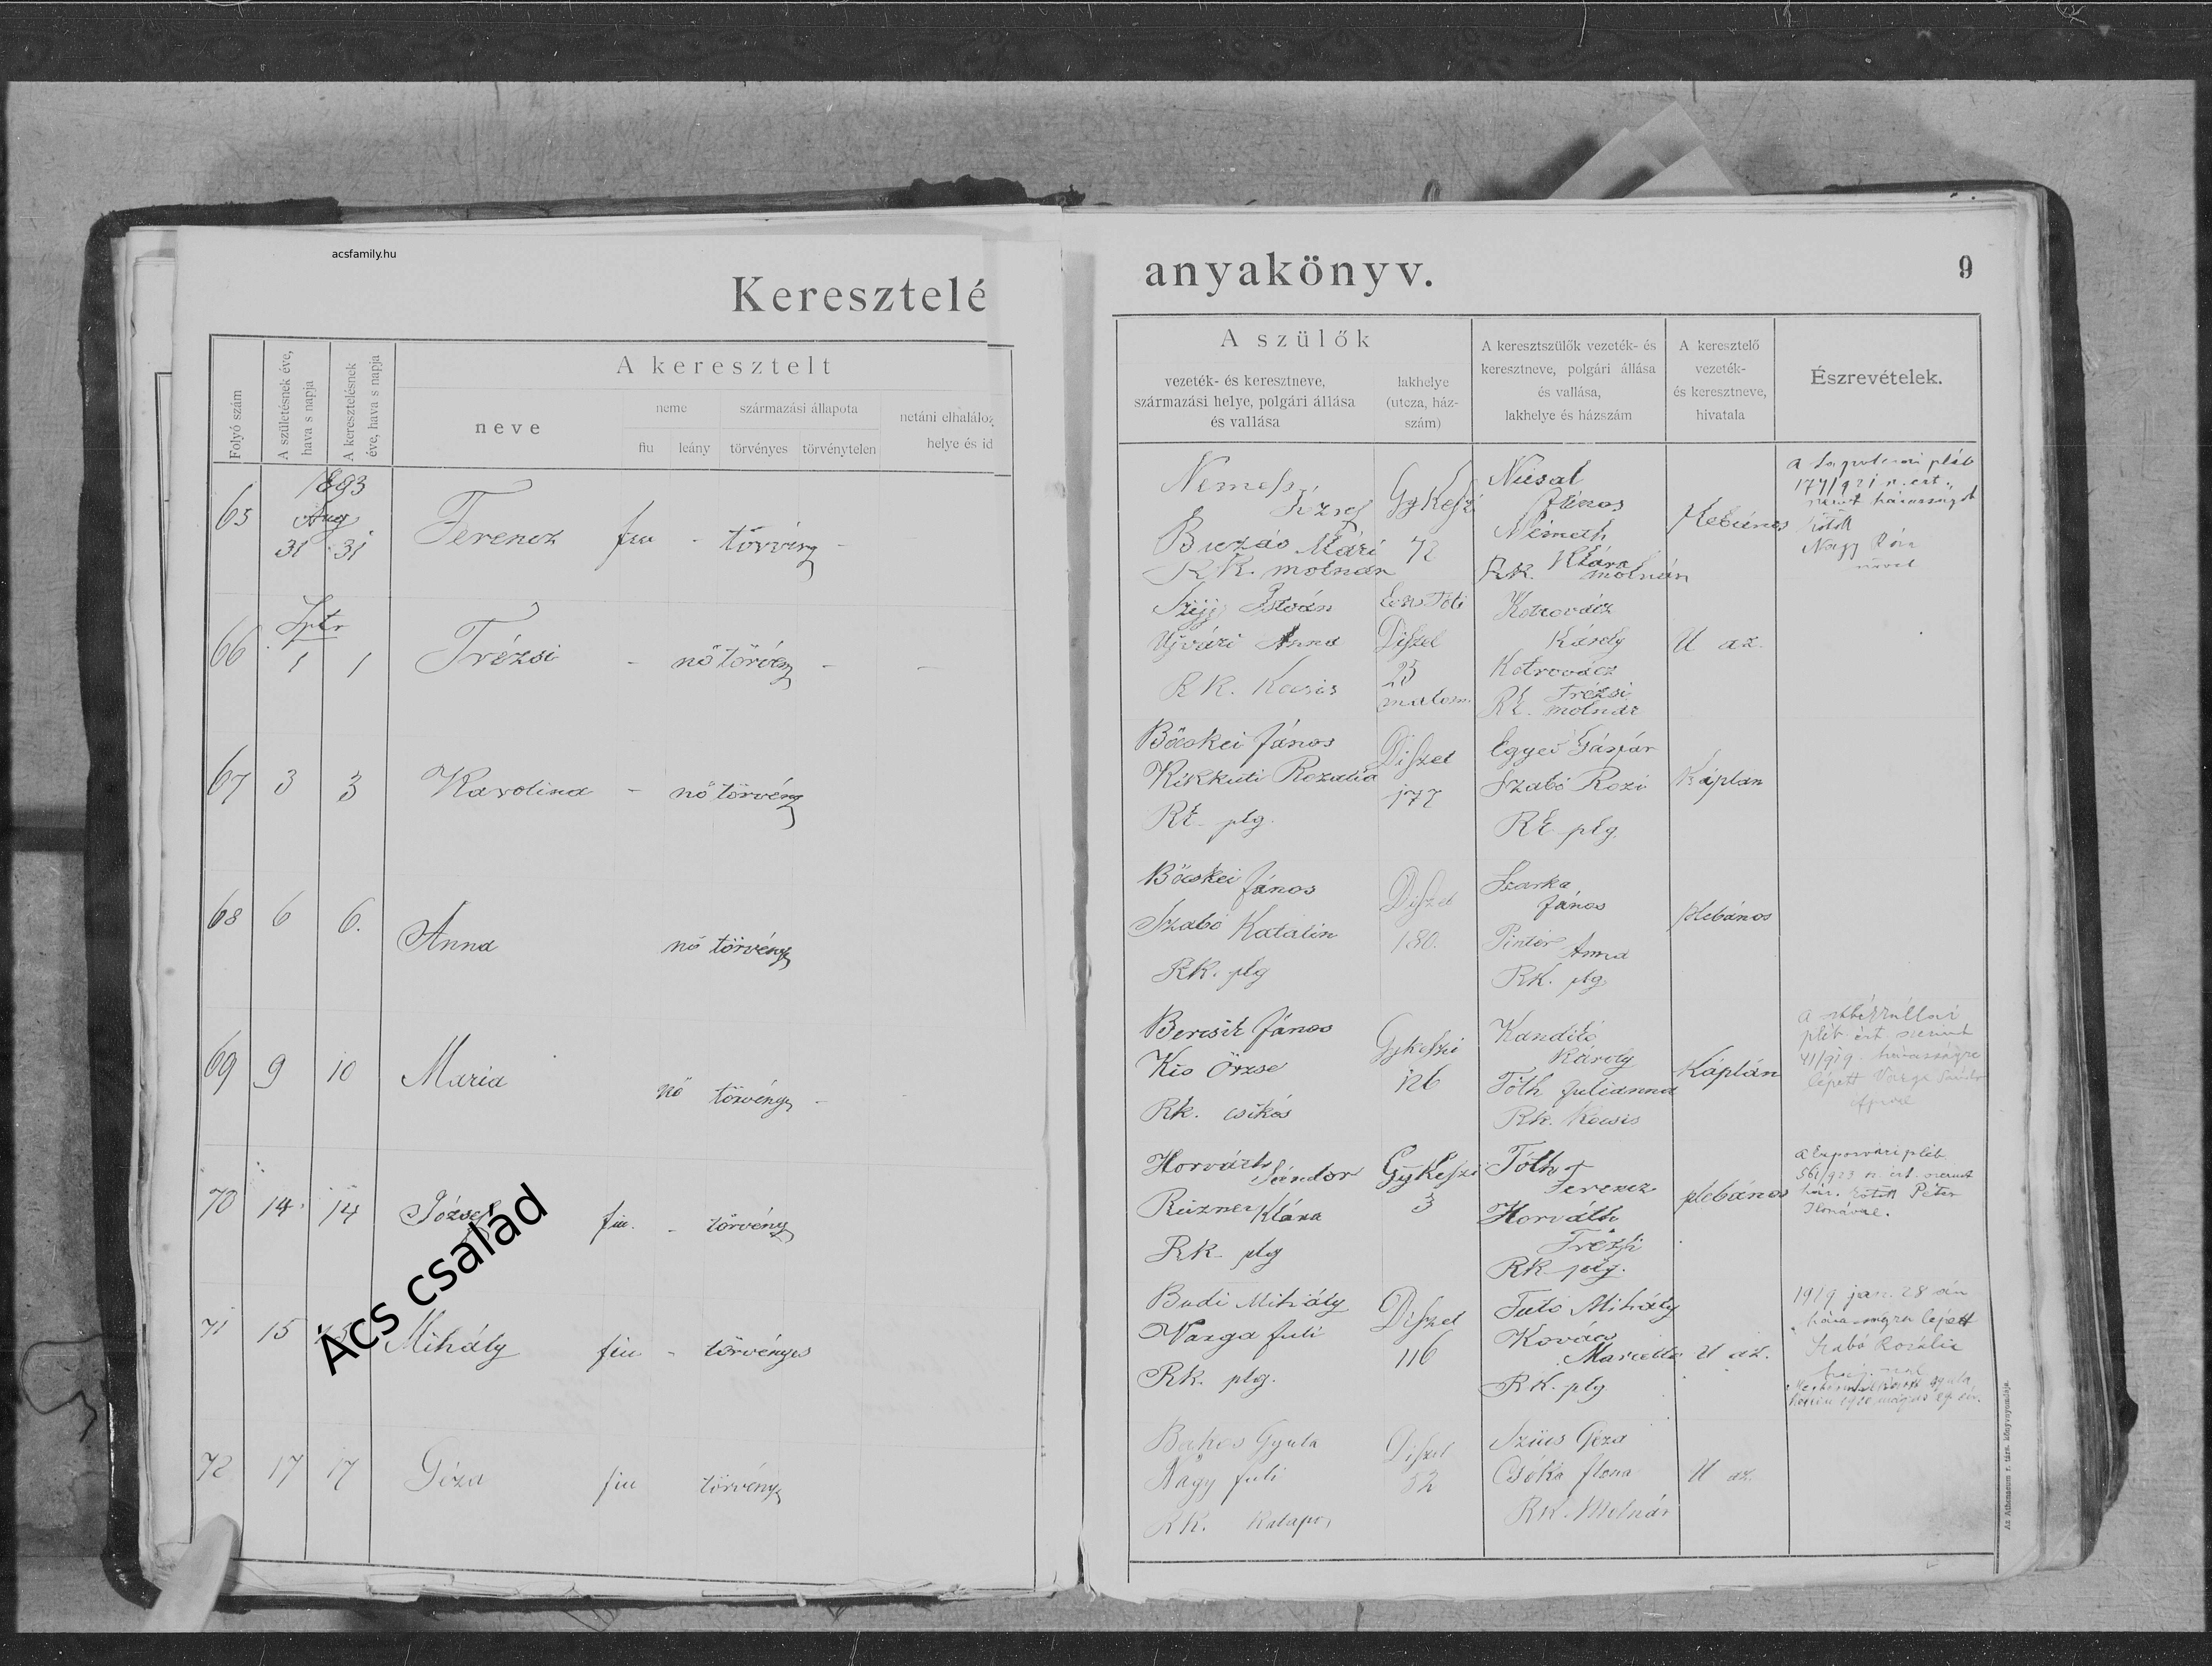 acsfamily.hu
Keresztelé
anyakönyv.
9
Folyó szám
A születésnek éve, hava s napja
A keresztelésnek éve, hava s napja
A keresztelt
neve
neme
fiu
leány
származási állapota
törvényes
törvénytelen
netáni elhaláloz
helye és id
A szülők
vezeték- és keresztneve,
származási helye, polgári állása
és vallása
lakhelye
(utcza, ház-
szám)
A keresztszülők vezeték- és
keresztneve, polgári állása
és vallása,
lakhelye és házszám
A keresztelő
vezeték-
és keresztneve,
hivatala
Észrevételek.
1893
Aug
65 31 31 Ferencz fiu - törvény -
Nemes
József
Buzás Mári
RK. molnár
Gy Keszi
72
János
Németh
Klára
RK. molnár
Plebános
kötött
Nagy
66 1 1 Trézsi - nő törvény - -
István
Ujvári Anna
RK. Kocsis
Diszel
25
malom
Kotrovácz
Károly
Kotrovácz
Trézsi
RK. molnár
U az.
67 3 3 Karolina - nő törvény
Böcskei János
Kikkuti Rozalia
RK. plg.
Diszel
177
Egyed Gáspár
Szabó Rozi
RK plg.
Káplan
68 6 6. Anna nő törvény
Böcskei János
Szabó Katalin
RK. plg
Diszel
180.
Szarka
János
Pintér Anna
RK. plg
plebános
69 9 10 Maria nő törvény -
Bercsik János
Kis Örzse
Rk. csikós
Gykeszi
126
Károly
Tóth Julianna
Rk. Kocsis
Káplán
pléb. ért. szerint
41/919. házasságra
lépett Varga Sándor
70 14. 14 József fiu. - törvény
Horváth Sándor
Klára
RK. plg
GyKeszi
3
Tóth
Ferencz
Horváth
Trézsi
RK plg.
plebános
561/923 sz. ért. szerint
ház. kötött Péter
Ilonával.
71 15 Mihály fiu - törvényes
Budi Mihály
Varga Juli
Rk. plg.
Diszel
116
Mihály
Kovács
RK. plg
U az.
1919 jan. 28 án
lépett
Szabó Rozália
72 17 17 Géza fiu törvény
Bakos Gyula
Nagy Juli
RK.
Diszel
52
Szüts Géza
Csóka Ilona
RK. Molnár
U az.
Ács család
Az Athenaeum r. társ. könyvnyomdája.